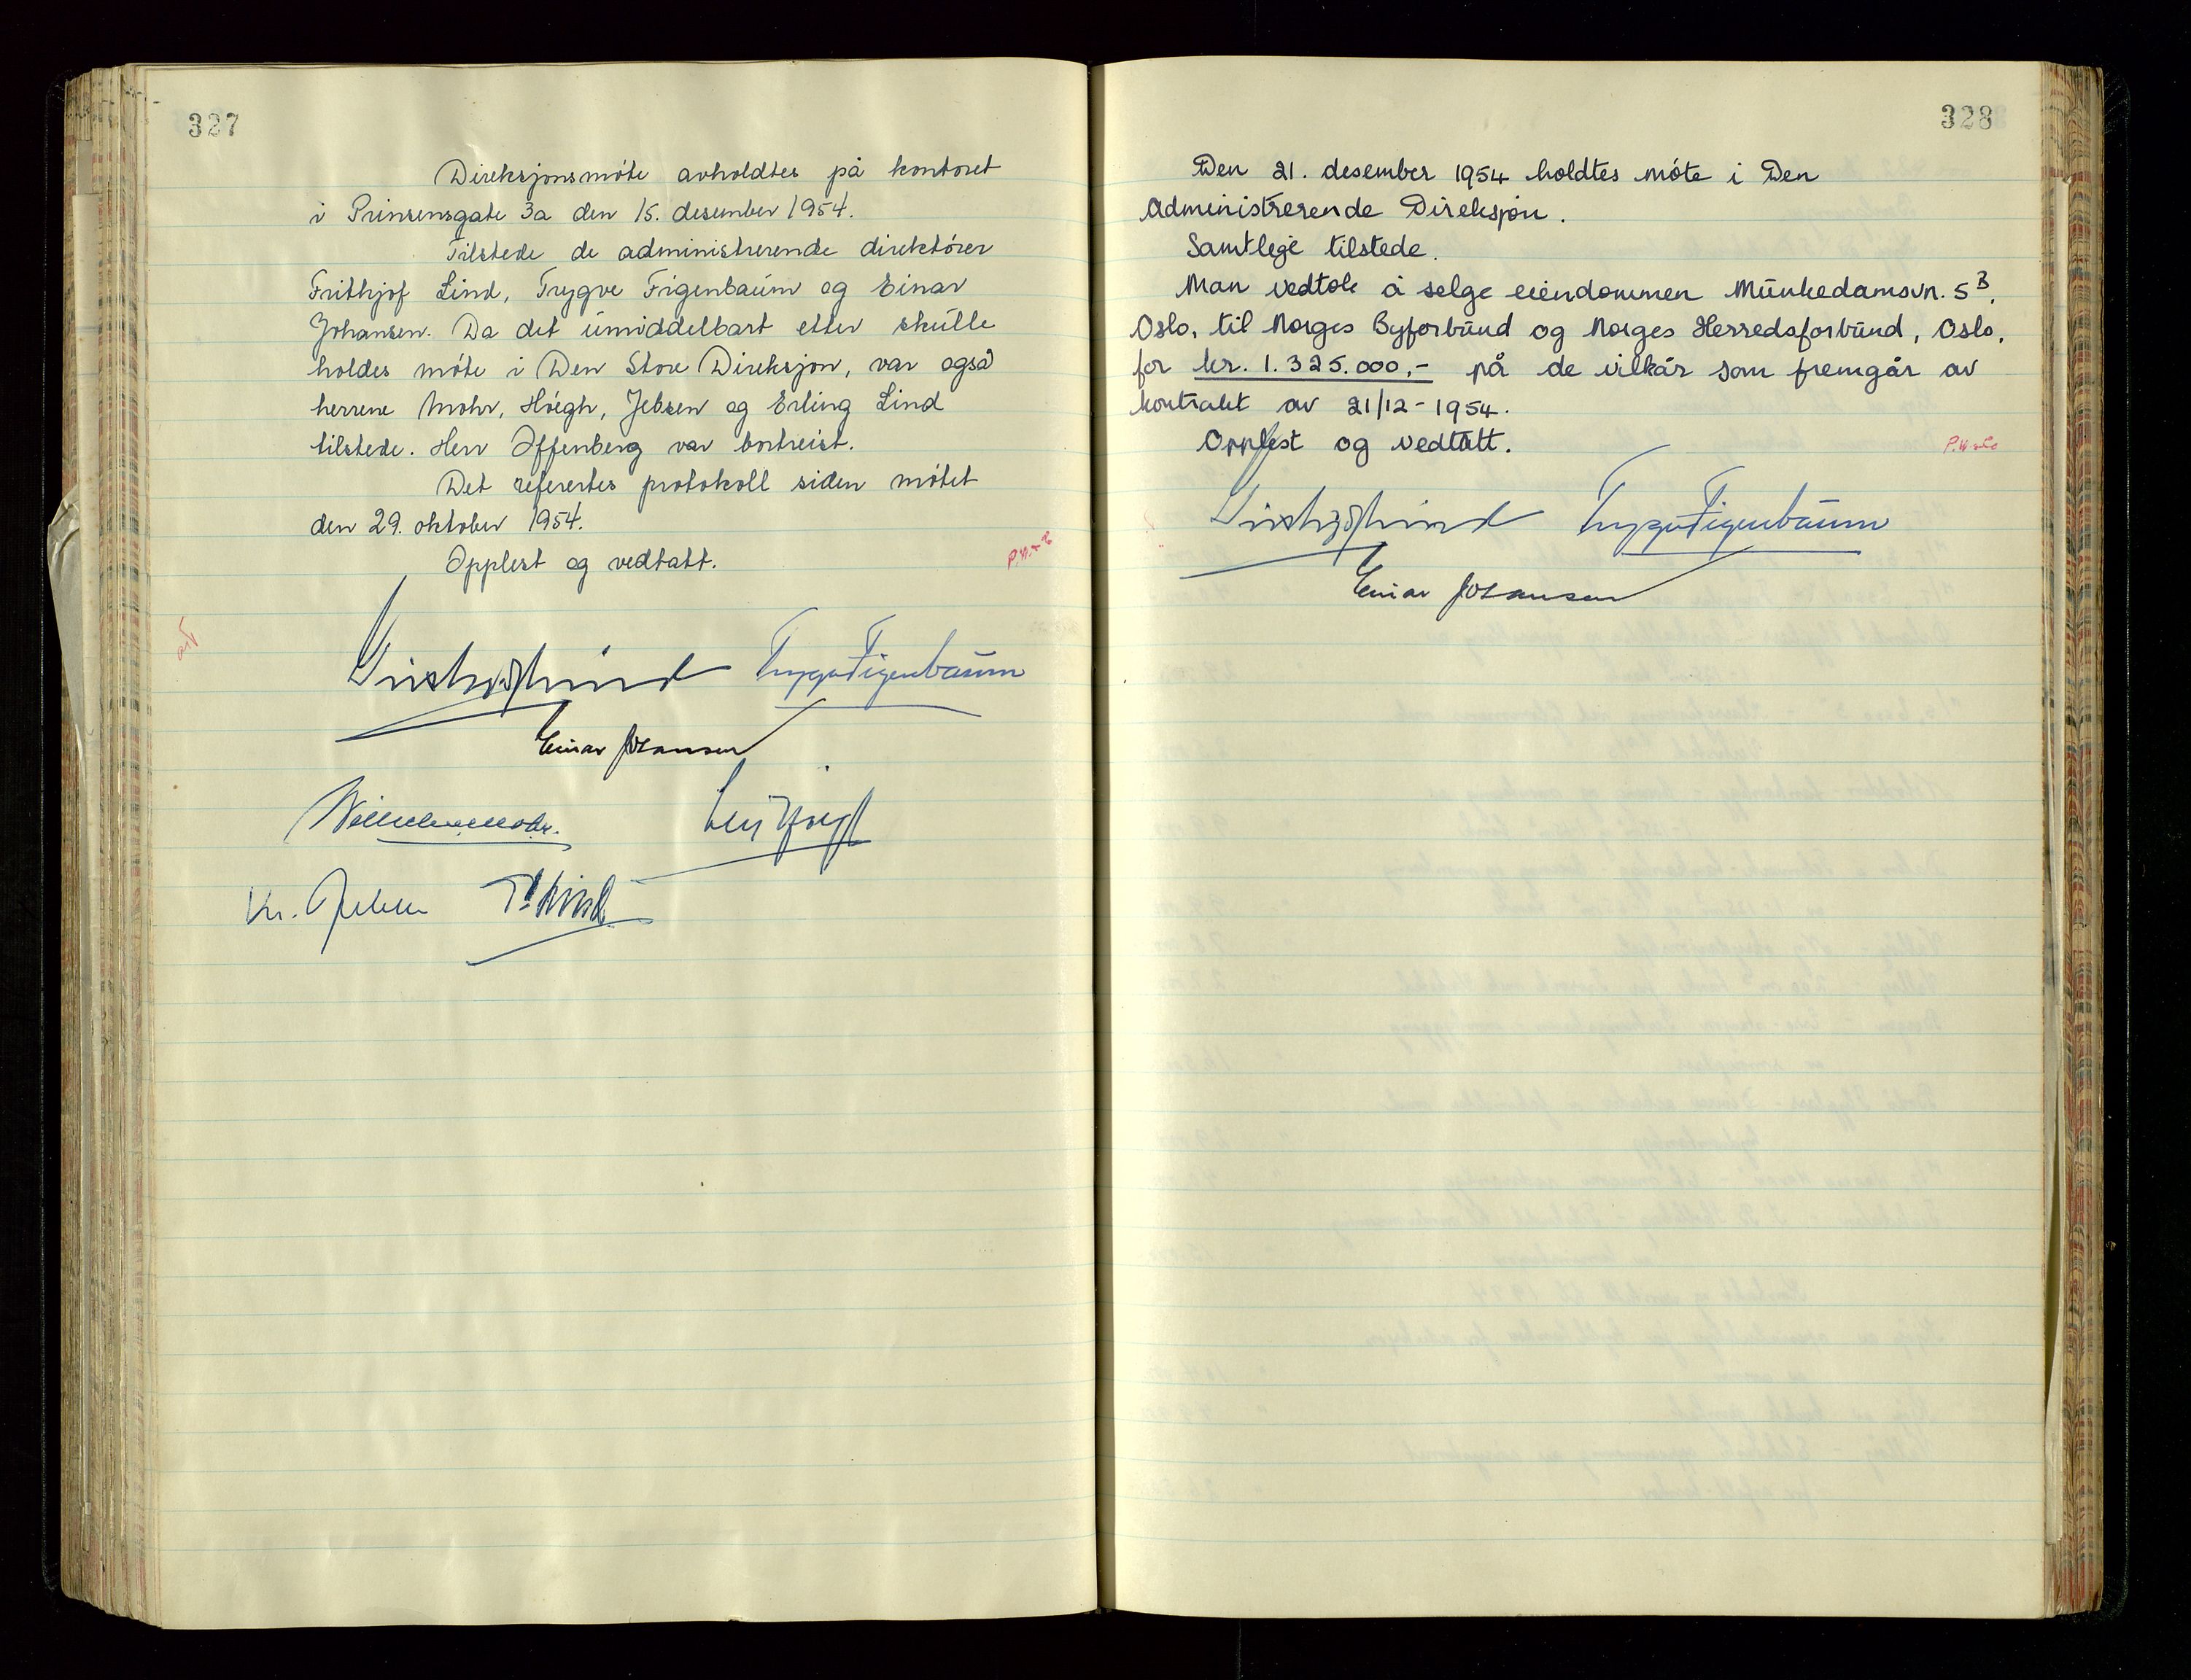 327
Direksjonsmøte avholdtes på kontoret
i Prinsensgate 3a den 15. desember 1954.
Tilstede de administrerende direktører
Frithjof Lind, Trygve Figenbaum og Einar
Johansen. Da det umiddelbart etter skulle
holdes møte i Den Store Direksjon, var også
herrene Mohr, Höegh, Jebsen og Erling Lind
tilstede. Herr Offenberg var bortreist.
Det refertes protokoll siden møtet
den 29. oktober 1954.
Opplest og vedtatt.
Frithjof Lind Trygve Figenbaum
Einar Johansen
Wilhelm Mohr. Leif Höegh
Kr. Jebsen Lind
328
Den 21. desember 1954 holdtes møte i Den
Administrerende Direksjon.
Samtlege tilstede.
Man vedtok å selge eiendommen Munkedamsvn. 5B,
Oslo, til Norges Byforbund og Norges Herredsforbund, Oslo,
for kr. 1.325.000,- på de vilkår som fremgår av
kontrakt av 21/12-1954.
Opplest og vedtatt.
Frithjof Lind Trygve Figenbaum
Einar Johansen